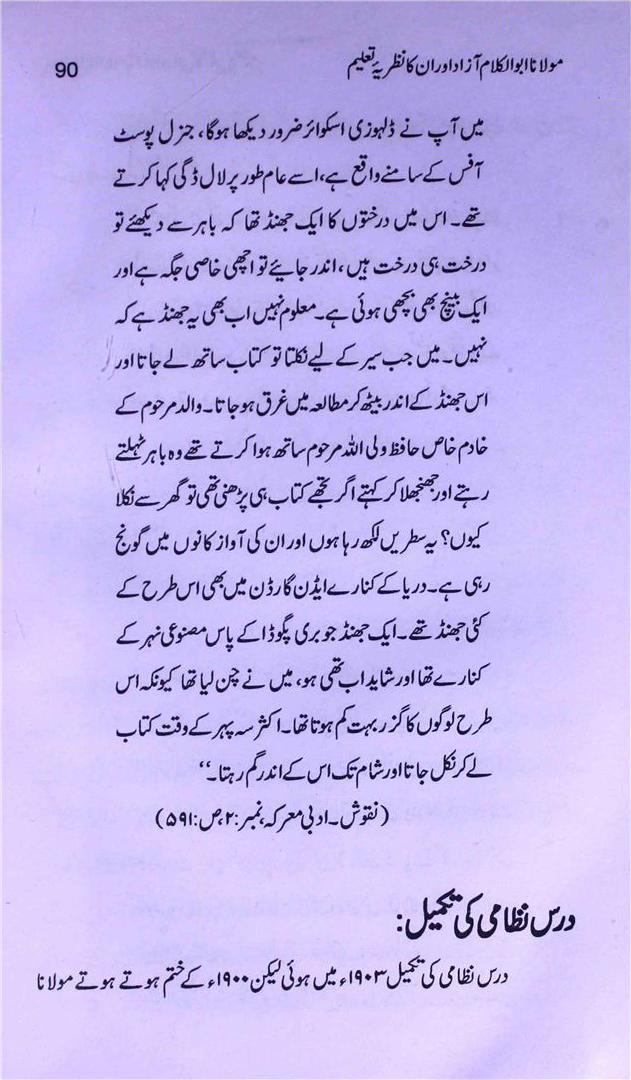 مولانا ابوالکلام آزاد اور ان کا نظریۂ تعلیم
90
میں آپ نے ڈلہوزی اسکوائر ضرور دیکھا ہوگا، جنرل پوسٹ
آفس کے سامنے واقع ہے، اسے عام طور پر لال ڈگی کہا کرتے
تھے۔ اس میں درختوں کا ایک جھنڈ تھا کہ باہر سے دیکھئے تو
درخت ہی درخت ہیں، اندر جائیے تو اچھی خاصی جگہ ہے اور
ایک بینچ بھی بچھی ہوئی ہے۔ معلوم نہیں اب بھی یہ جھنڈ ہے کہ
نہیں۔ میں جب سیر کے لیے نکلتا تو کتاب ساتھ لے جاتا اور
اس جھنڈ کے اندر بیٹھ کر مطالعہ میں غرق ہو جاتا۔ والد مرحوم کے
خادم خاص حافظ ولی اللہ مرحوم ساتھ ہوا کرتے تھے وہ باہر ٹہلتے
رہتے اور جھنجھلا کر کہتے اگر تجھے کتاب ہی پڑھنی تھی تو گھر سے نکلا
کیوں؟ یہ سطریں لکھ رہا ہوں اور ان کی آواز کانوں میں گونج
رہی ہے۔ دریا کے کنارے ایڈن گارڈن میں بھی اس طرح کے
کئی جھنڈ تھے۔ ایک جھنڈ جو بری پگوڈا کے پاس مصنوعی نہر کے
کنارے تھا اور شاید اب تھی ہو، میں نے چن لیا تھا کیونکہ اس
طرح لوگوں کا گزر بہت کم ہوتا تھا۔ اکثر سہ پہر کے وقت کتاب
لے کر نکل جاتا اور شام تک اس کے اندر گم رہتا۔‘‘
(نقوش۔ ادبی معرکہ نمبر:۲،ص:۵۹۱)
درس نظامی کی تکمیل:
درس نظامی کی تکمیل ۱۹۰۳ء میں ہوئی لیکن ۱۹۰۰ء کے ختم ہوتے ہوتے مولانا